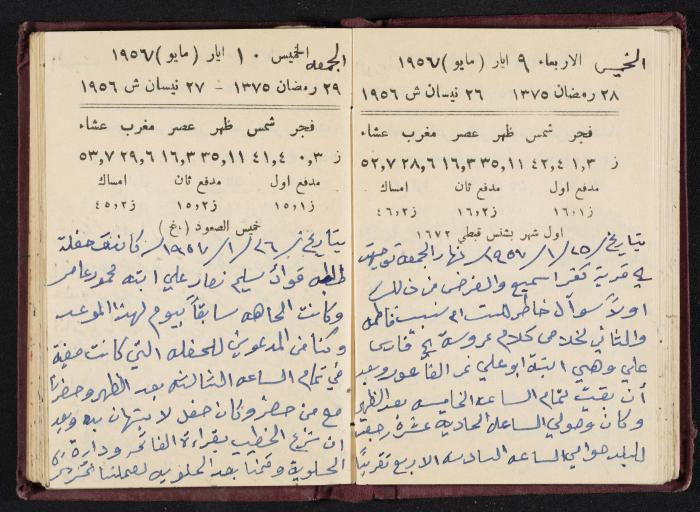 الخميس الاربعاء ٩ ايار ( مايو ) ١٩٥٧
٢٨ رمضان ١٣٧٥ ٢٦ نيسان ش ١٩٥٦
فجر شمس ظهر عصر مغرب عشاء
ز ١,٣ ٤٢,٤ ٣٥,١١ ١٦,٣ ٢٨,٦ ٥٢,٧
مدفع اول مدفع ثان امساك
ز١,١٦ ز٢,١٦ ز٢,٤٦
اول شهر بشنس قبطي ١٦٧٢
بتاريخ ٢٥/١/١٩٥٧ نهار الجمعه توجهت
في قرية كفر اسميع والغرض من ذلك
اولاً سوآل خاطر الست ام نسب فاطمه
والثاني كلام عروسة
علي وهي ابنة ابو علي نمر الفاعور وبعد
أن بقيت لتمام الساعه الخامسه بعد الظهر
وكان وصولي الساعه الحادية عشرة رجعت
للبلد حوالي الساعه السادسه الا ربع تقريباً
الجمعه الخميس ١٠ ايار ( مايو ) ١٩٥٧
٢٩ رمضان ١٣٧٥ - ٢٧ نيسان ش ١٩٥٦
فجر شمس ظهر عصر مغرب عشاء
ز ٠,٣ ٤١,٤ ٣٥,١١ ١٦,٣ ٢٩,٦ ٥٣,٧
مدفع اول مدفع ثان امساك
ز١,١٥ ز٢,١٥ ز٢,٤٥
خميس الصعود ( .غ )
بتاريخ ٢٦/١/١٩٥٧ كانت حفلة
فوآد سليم نصار علي ابنة محمود عامر
وكانت الجاهه سابقاً بيوم لهذا الموعد
وكنا من المدعوين للحفله التي كانت
في تمام الساعه الثالثه بعد الظهر وحضرنا
مع من حضر وكان حفل لا يستهان به وبعد
ان شرع الخطيب بقراءة الفاتحه ودارة
الحلوية وقمنا بعد الحلويه لعملنا